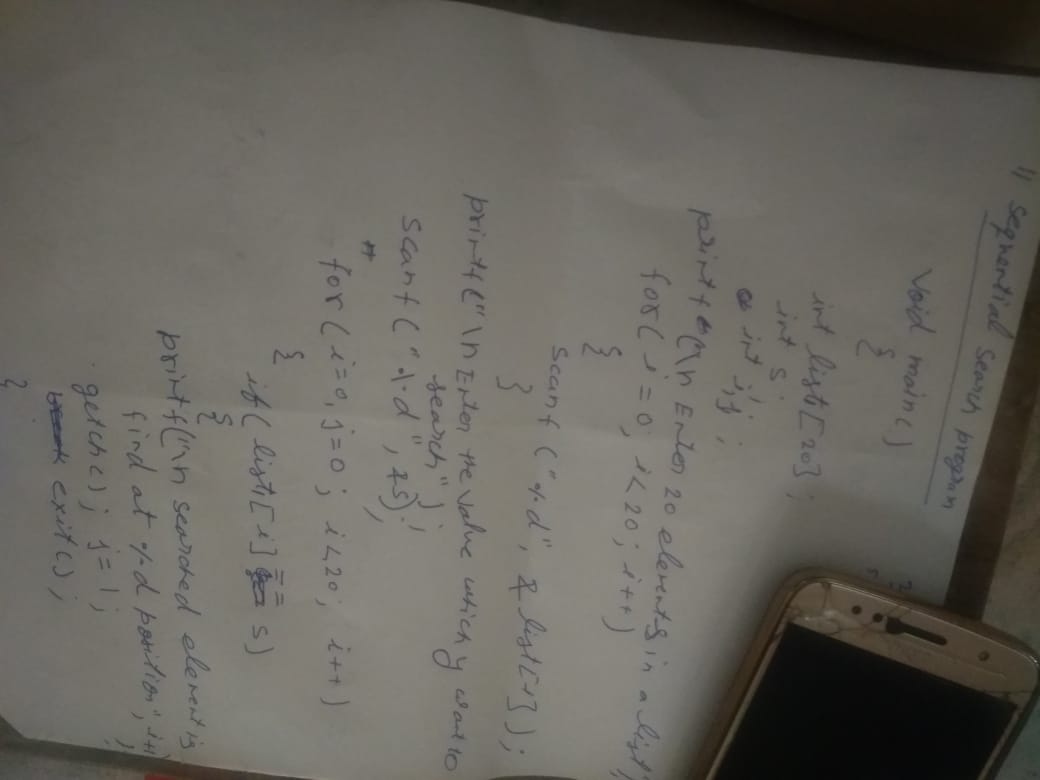 // Sequential search program
Void main()
{
int list[20];
int s;
int i,j;
printf("\n Enter 20 elements in a list
for( i=0; i<20; i++)
{
scanf("%d", & list[i]);
}
printf("\n Enter the value which y want to
search");
scanf("%d", &s);
for( i=0, j=0; i<20; i++)
{
if( list[i] == s)
{
printf("\n searched element is
find at %d position", i+1
;
getch(); j=1;
exit();
}